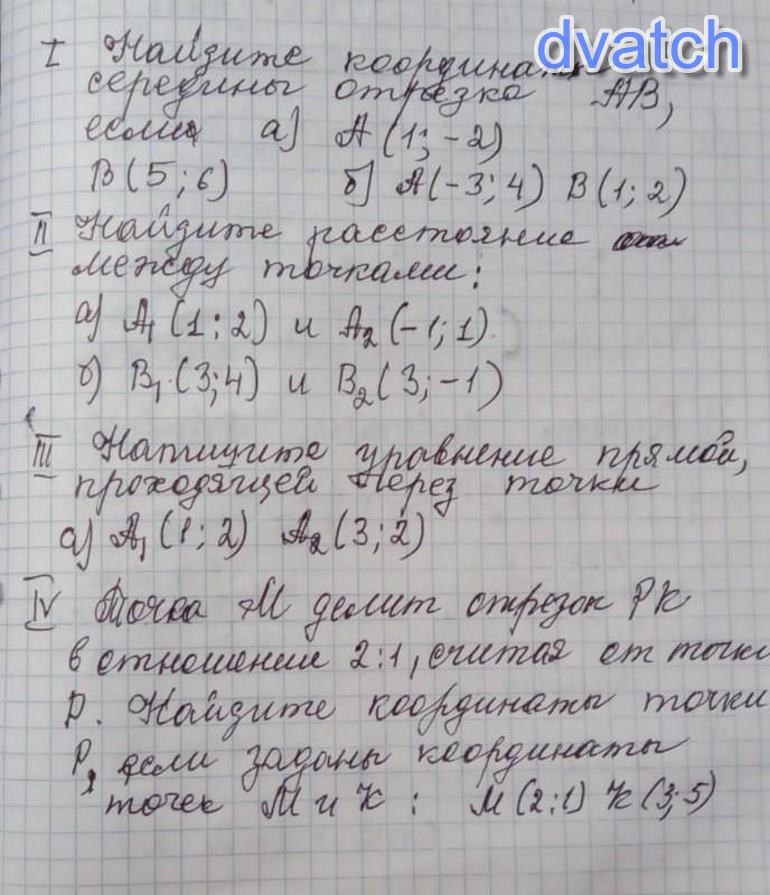 dvatch
I Найдите координаты
середины отрезка AB,
если а) A(1; -2)
B(5; 6) б) A(-3; 4) B(1; 2)
II Найдите расстояние
между точками:
а) A₁(1; 2) и A₂(-1; 1).
б) B₁(3; 4) и B₂(3; -1)
III Напишите уравнение прямой,
проходящей через точки
а) A₁(1; 2) A₂(3; 2)
IV Точка M делит отрезок PK
в отношении 2:1, считая от точки
P. Найдите координаты точки
P, если заданы координаты
точек M и K: M(2:1) K(3;5)